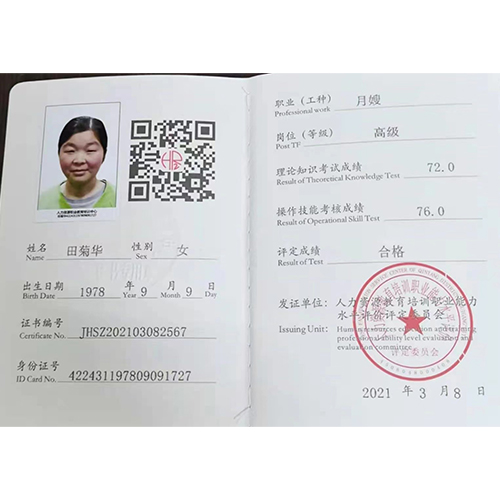 姓名 田菊华 性别 女
Name Sex
出生日期 1978 年 9 月 9 日
Birth Date Year Month Day
证书编号
Certificate No. JHSZ202103082567
身份证号
ID Card No. 422431197809091727
职业（工种） 月嫂
Professional work
岗位（等级） 高级
Post TF
理论知识考试成绩 72.0
Result of Theoretical Knowledge Test
操作技能考核成绩 76.0
Result of Operational Skill Test
评定成绩 合格
Result of Test
发证单位：人力资源教育培训职业能力
水平评价评定委员会
Issuing Unit: Human resources education and training
professional ability level evaluation and
evaluation committee
评定委员会
2021 年 3 月 8 日